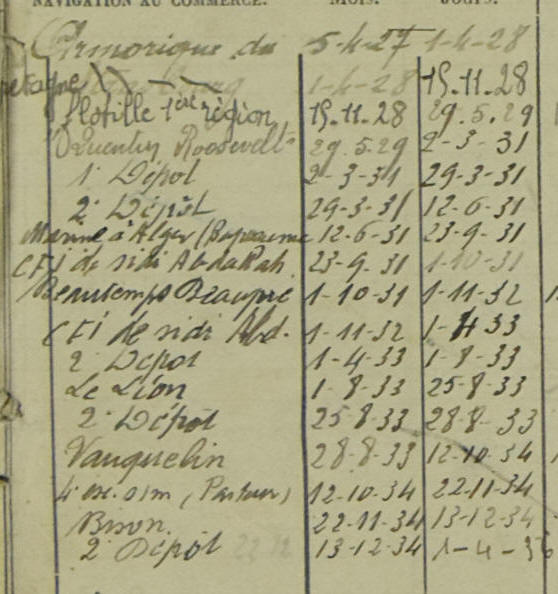 NAVIGATION AU COMMERCE. MOIS. JOURS.
Armorique du 5-4-27 1-4-28
1-4-28 15.11.28
flotille 1ère région 15.11.28 29.5.29
"Quentin Roosevelt" 29.5.29 2-3-31
1er Dépôt 2-3-31 29-3-31
2e Dépôt 29-3-31 12-6-31
Marine à Alger 12-6-31 23-9-31
CFI de sidi Abdallah 23-9-31 1-10-31
Beautemps Beaupré 1-10-31 1-11-32
CFI de sidi Abd. 1-11-32 1-4-33
2e Dépôt 1-4-33 1-8-33
Le Lion 1-8-33 25-8-33
2e Dépôt 25-8-33 28-8-33
Vauquelin 28-8-33 12-10-34
12-10-34 22-11-34
Bison 22-11-34 13-12-34
2e Dépôt 13-12-34 1-4-36